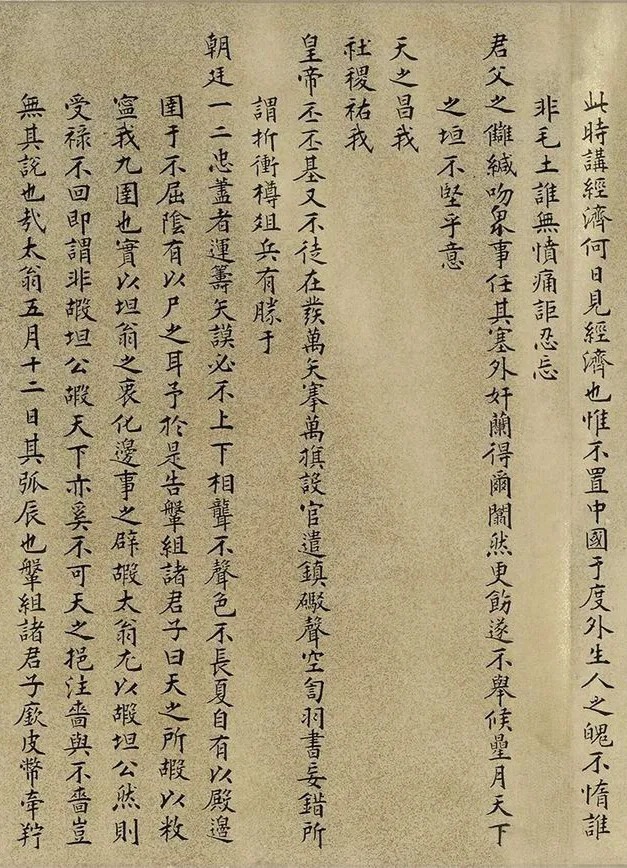 此時講經濟何日見經濟也惟不置中國于度外生人之魄不惰誰
非毛土誰無憤痛詎忍忘
君父之讎緘吻衆事任其塞外奸蘭得爾闒然更飭遂不舉候壘月天下
之垣不堅乎意
天之昌我
社稷祐我
皇帝丕丕基又不徒在發萬矢搴萬旗設官遣鎮礮聲空訇羽書妄錯所
謂折衝樽俎兵有勝于
朝廷一二忠藎者運籌矢謨必不上下相聾不聲色不長夏自有以殿邊
圉于不屈陰有以尸之耳予於是告鞶組諸君子曰天之所嘏以救
寧我九圍也實以坦翁之衷化邊事之辟嘏太翁尤以嘏坦公然則
受祿不回即謂非嘏坦公嘏天下亦奚不可天之挹注嗇與不嗇豈
無其說也哉太翁五月十二日其弧辰也鞶組諸君子歐皮幣牽羜